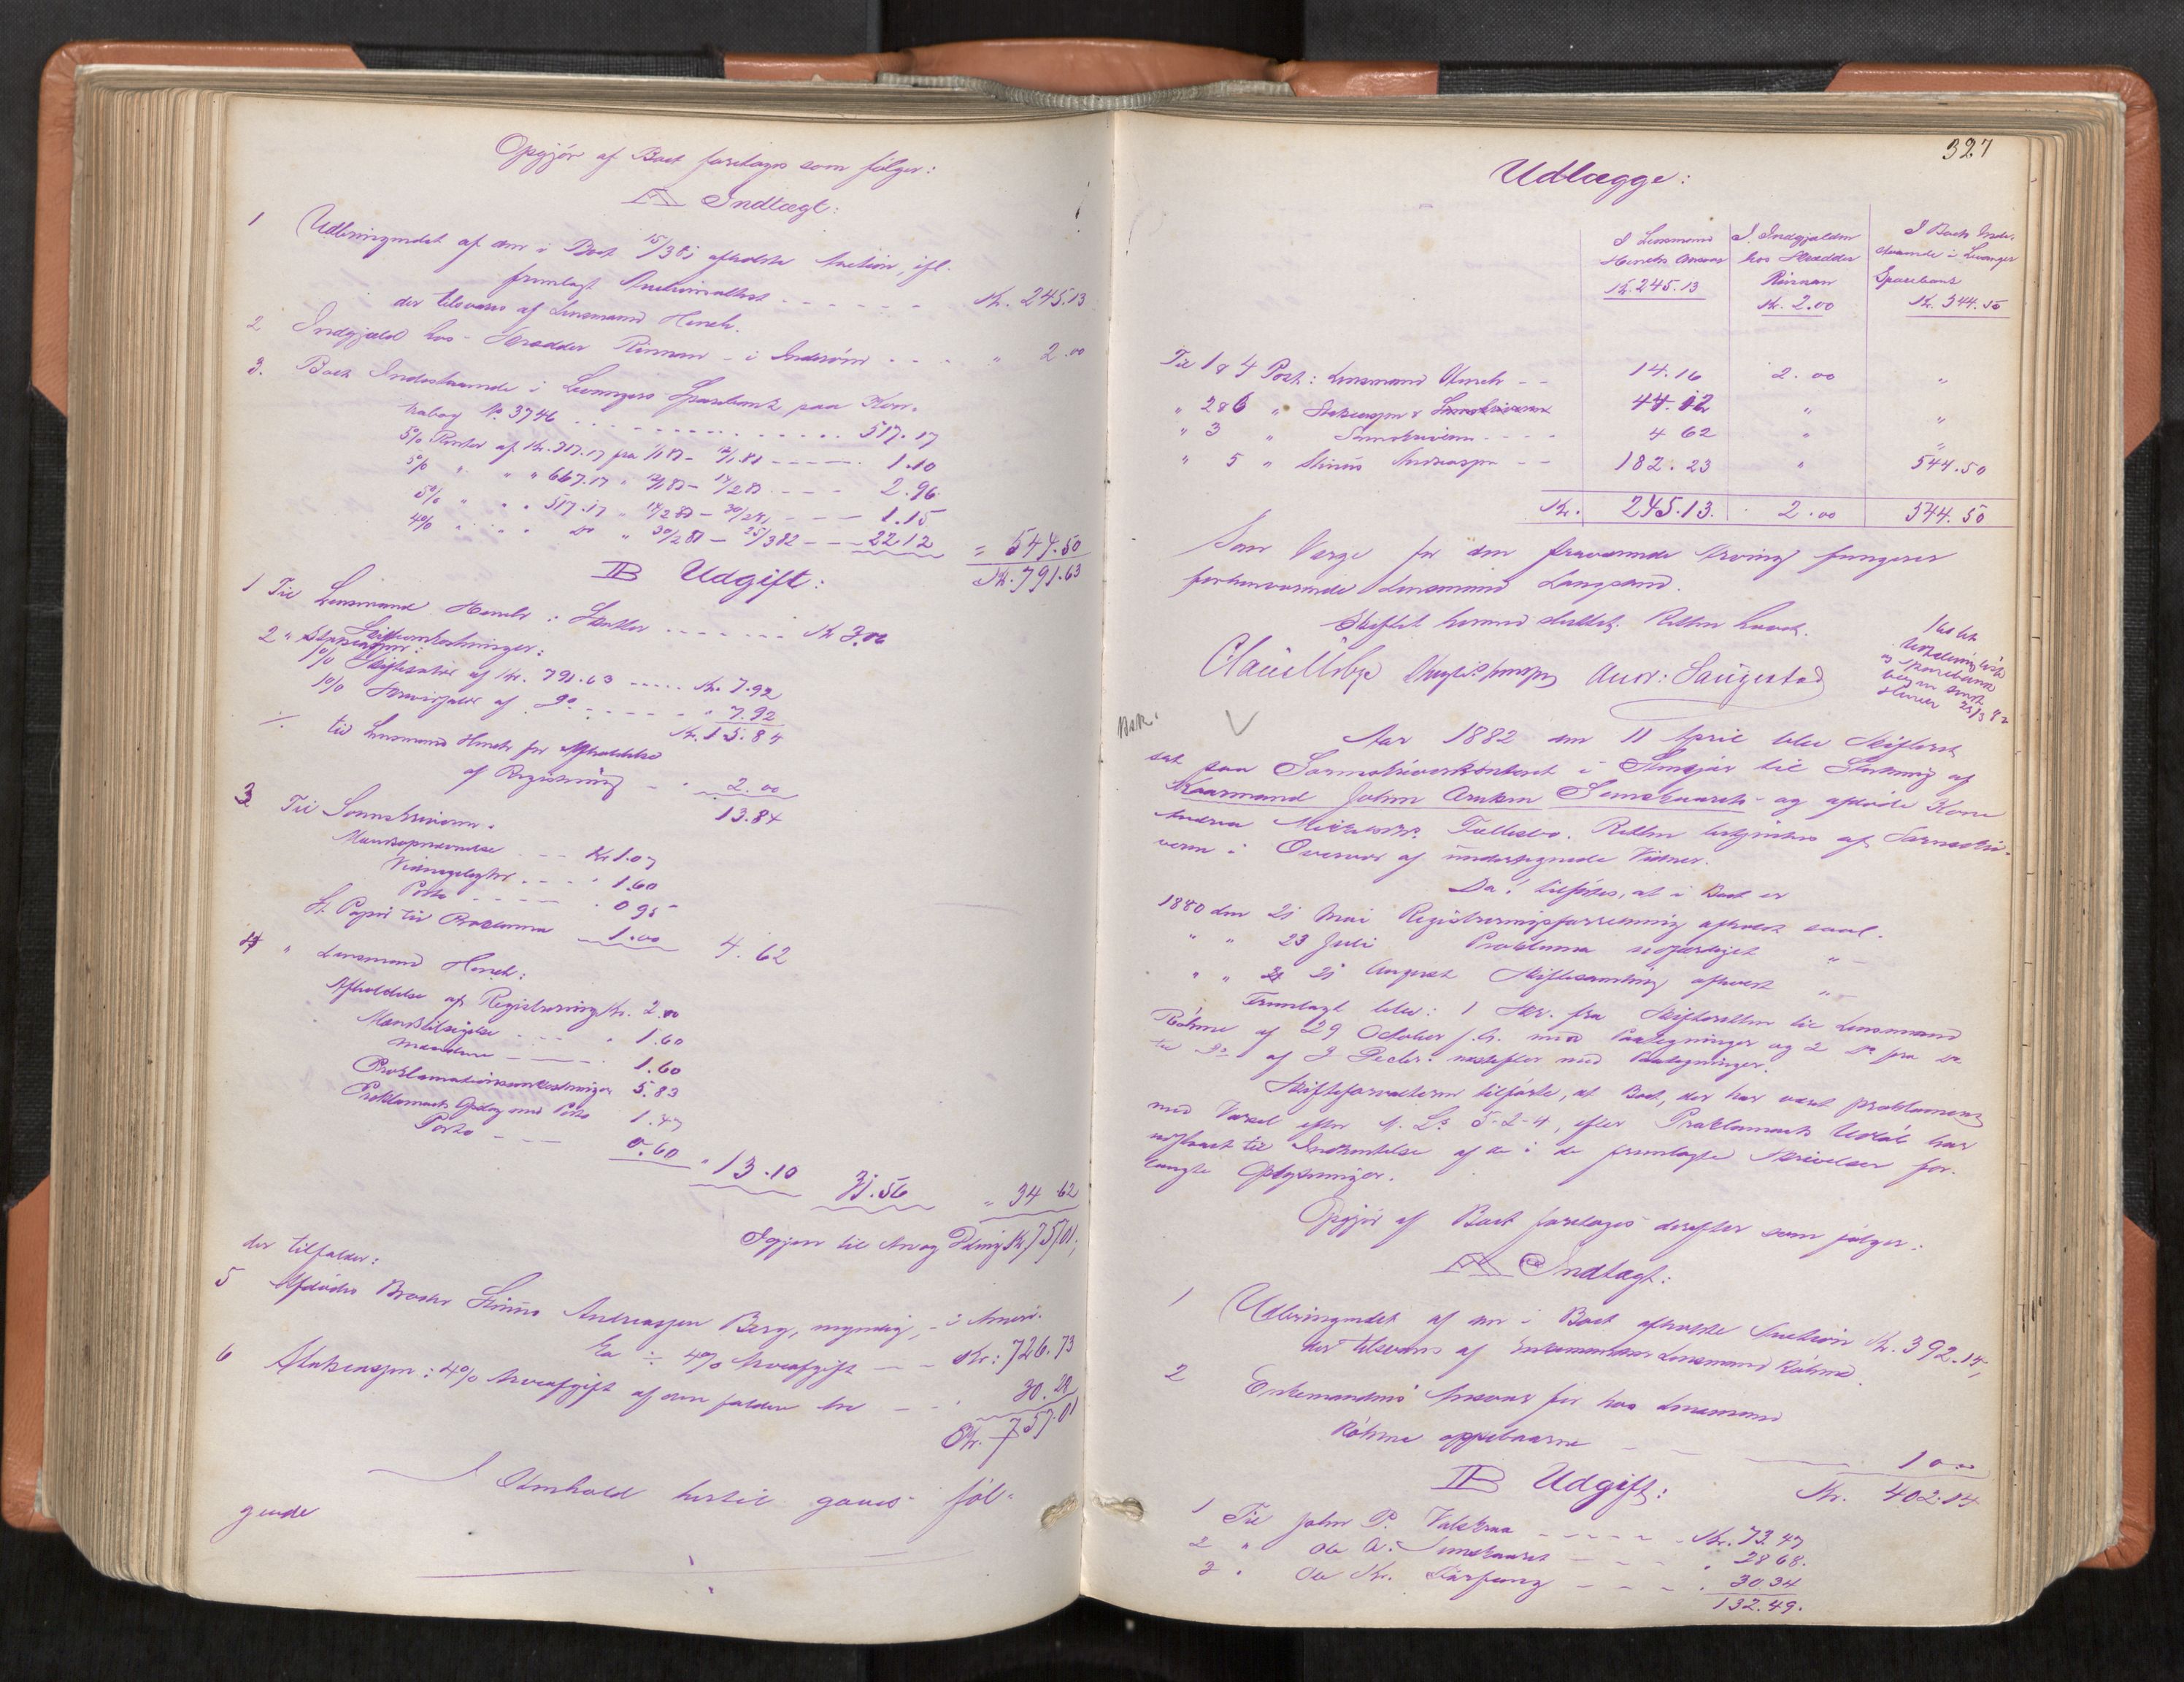 Opgjør af Boet foretages som følger:
A Indtægt:
1 Udbringendet af den i Boet 15/3 81 afholdte Auction, ifl.
fremlagt Auctionsattest - - - - - - Kr. 245.13
der tilsvares af Lensmand Henck.
2 Indgjæld hos Skrædder Rinnan i Inderøen - - - " 2.00
3. Boets Indestaaende i Levangers Sparebank paa Kon-
trabog No 3746 - - - - - - 517.17
5% Renter af Kr. 517.17 fra - - - - 1.10
5% " " " 667.17 " - - - - 2.96
5% " " " 517.17 " - - - 1.15
4% " " " Do " 30/2 81 - 25/3 82 - - 22.12 = 544.50
Kr. 791.63
B Udgift:
1 Til Lensmand Henck: Skatter - - - - - - Kr 3.06
2 " Skifteomkostninger:
1% Skifteafgift af Kr. 791.63 - - - - Kr. 7.92
1% af Do - - - - - " 7.92
Kr. 15.84
÷ til Lensmand Henck for Afholdelse
af Registrering - " 2.00
13.84
3 Til Sorenskriveren.
Mandsopnævnelse - - - Kr 1.07
Vidnegebyhr - - - " 1.60
Porto - - - - " 0.95
St. Papir til Proklama 1.00 4.62
4 " Lensmand Henck:
Afholdelse af Registrering Kr. 2.00
Mændstilsigelse - - - " 1.60
Mændene - - - - 1.60
Proklamationsomkostninger 5.83
Proklamaets Opslag med Porto 1.47
Porto - - - 0.60 " 13.10 31.56 " 34 62
Igjen til Arv og Deling Kr. 757.01,
der tilfalder:
5 Afdødes Broder Stinus Andreassen Berg, myndig, i Ameri-
ka ÷ 4% Arveafgift - - - Kr: 726.73
6 Statscassen: 4% Arveafgift af den faldne Arv - - - 30.28
Kr. 757.01
I Henhold hertil gaves føl-
gende
327
Udlægge:
I Lensmand
Hencks Ansvar
Kr. 245.13
I Indgjælden
hos Skrædder
Rinnan
Kr. 2.00
I Boets Inde-
staaende i Levanger
Sparebank
Kr. 544.50
Til 1 & 4 Post: Lensmand Henck - - 14.16 2.00 "
" 2 & 6 " Statscassen & Sorenskriveren 44.12 " "
" 3 " Sorenskriveren - - - - 4 62 " "
" 5 " Stinus Andreassen - - 182.23 " 544.50
Kr. 245.13. 2.00 544.50
Som Værge for den fraværende Arving fungerer
forhenværende Lensmand Langsand.
Skiftet hermed sluttet. Retten hævet.
Andr: Saugestad
og Sparebank
bog er sendt
Henck 25/3 82
Aar 1882 den 11 April blev Skifteret
sat paa Sorenskriverkontoret i Stenkjær til Slutning af
Kaarmand Johan Semskaarets og afdøde Kone
Andrea Tællesbo. Retten betjentes af Sorenskri-
veren i Overvær af undertegnede Vidner.
Da tilførtes, at i Boet er
1880 den 21 Mai Registreringsforretning afholdt saal.
" " 23 Juli Proklama udfærdiget " -
" " 21 August Skiftesamling afholdt " -
Fremlagt blev: 1 Skr. fra Skifteretten til Lensmand
Röhme af 29 October f. A. med Paategninger og 2 Do fra Do
til Do af 3 Decbr. næstefter med Paategninger.
Skifteforvalteren tilførte, at Boet, der har været proklameret
med Varsel efter N. L: 5-2-4, efter Proklamaets Udløb har
udstaaet til Indhentelse af de i de fremlagte Skrivelser for-
langte Oplysninger.
Opgjør af Boet foretages derefter som følger:
A Indtægt:
1 Udbringendet af den i Boet afholdte Auction Kr. 392.14,
der tilsvares af Lensmand Röhme.
2 Enkemandens Ansvar for hos Lensmand
Röhme oppebaarne - - 10 00
Kr. 402.14
B Udgift:
1 Til John P. Valskraa - - - - - Kr. 73.47
2 " Ole A. Semskaaret - - - - " 28 68.
3 " Ole Kr. - - - - " 30 34
132.49.